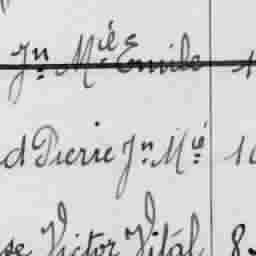 Jn Mie Emile
d Pierre Jn Mié 10
se Victor Vital 8